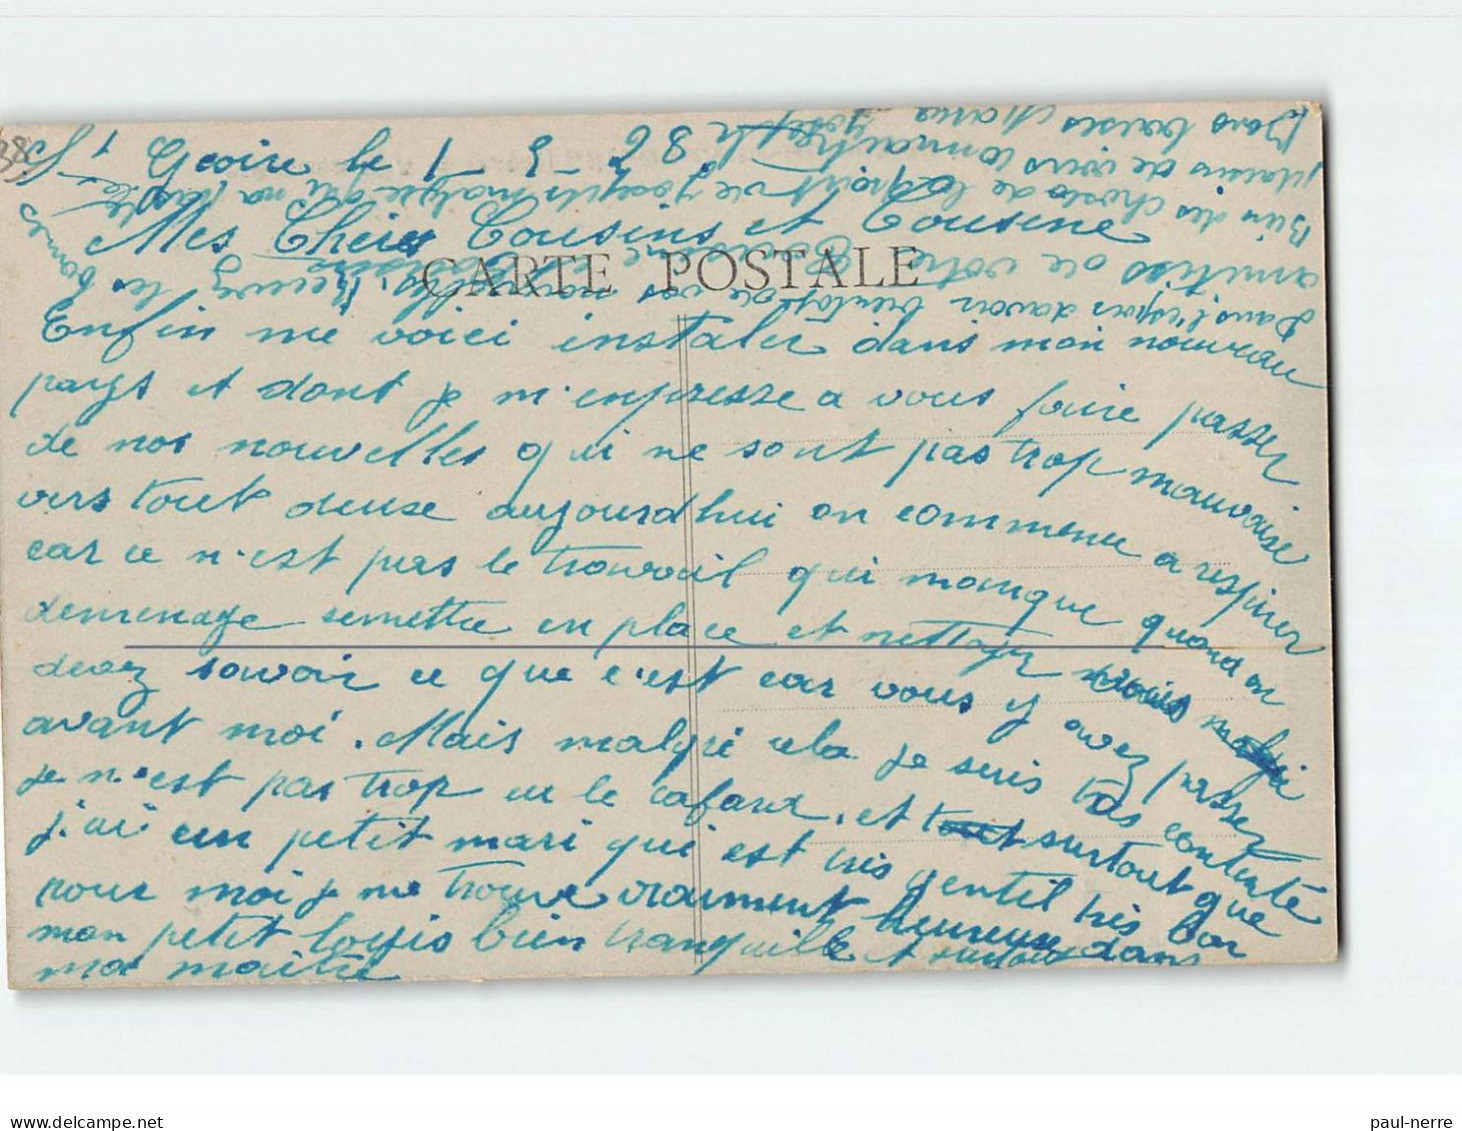 38
St Geoire le 1 9 28
Mes Chers Cousins et Cousine
CARTE POSTALE
Enfin me voici instaler dans mon nouveau
pays et dont je m'enpresse a vous faire passer
de nos nouvelles qui ne sont pas trop mauvaise
vers tout deuse aujourdhui on commence a respirer
car ce n'est pas le travail qui manque quand on
demenage remettre en place et nettoyer vous
devez savoir ce que c'est car vous y avez passez
avant moi. Mais malgré cela je suis très contente
je n'est pas trop eu le cafard, et surtout que
j'ai un petit mari qui est très gentil très bon
pour moi je me trouve vraiment heureuse dans
mon petit logis bien tranquille et surtout
ma maitre
Dans l'espoir davoir bientot de vos nouvelles. Recevez les bonnes
amities de votre Cousine
Bien des choses de la part de Joseph malgré qu'il na pas le
plaisir de vous connaitre
Bons baisers Maria Joseph
paul-nerre